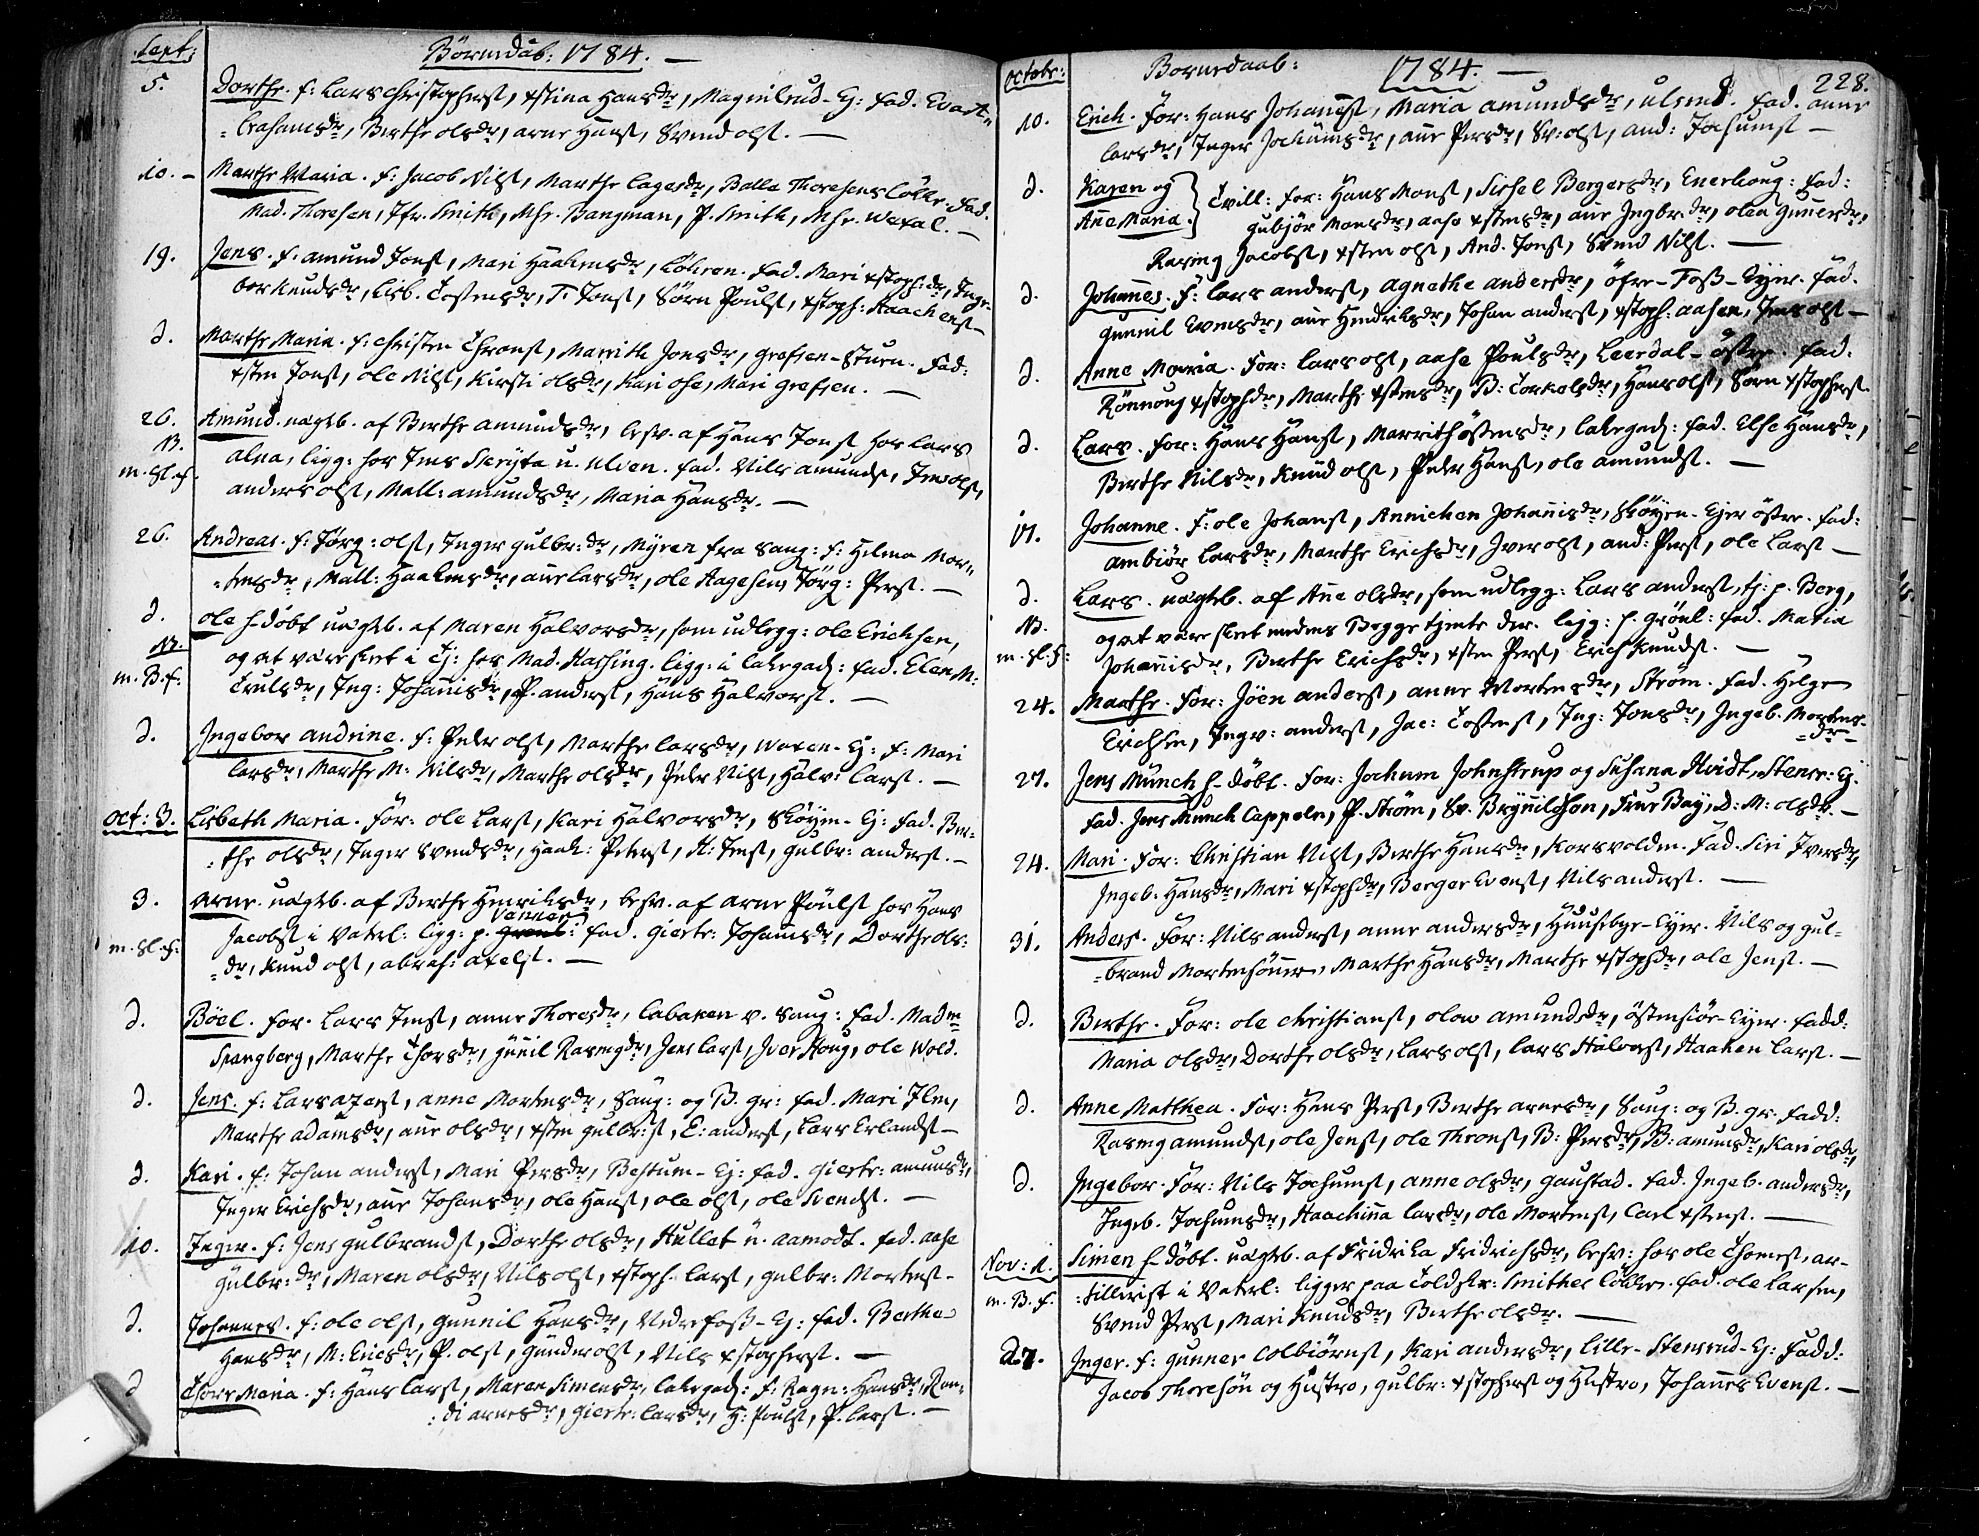 Sept:
Börnedåb: 1784. —
5. Dorthe. f: Lars Christophers., xstina Hansdr, Magnilrud-Ej: fad. Eva At-
brahamsdr, Berthe olsdr, arne Hans., Svend ols. —
10. – Marthe Maria. f: Jacob Nils., Marthe Lagesdr, Balle Thoresens Lökke. fad.
Mad. Thoresen, Jfr. Smith, Mhr. Bangman, P. Smith, Mhr. Wexal. —
19. Jens. f: amund Jons., Mari Haakensdr, Löhren. fad. Mari xstoph:dr, Inge-
bor Knudsdr, Lisb. Tostensdr, T. Jons., Sörn Pouls., xstoph: Haachens. –
d. Marthe Maria. f: Christen Throns., Marrith Jonsdr, grefsen-Stuen. fad:
xsten Jons., ole Nils., Kirsti olsdr, Kari ose, Mari Grefsen. —
26. Amund. uægteb. af Berthe amundsdr, besv. af Hans Jons. hos Lars
N. alna, ligg: hos Jens Skrÿte u. Ulven. fad. Nils amunds., Jens ols.,
m. sl. f. anders ols., Mall: amundsdr, Maria Hansdr. —
26. Andreas. f: Jörg: ols., Inger gulbr:dr, Myren fra Saug: f: Helena Mor-
tensdr, Mall: Haakensdr, ane Larsdr, ole Aagesen, Jörg: Pers. —
d. ole h-döbt uægteb. af Maren Halvorsdr, som udlegg: ole Erichsen,
NB. og at være skeet i Tj: hos Mad. Hassing. ligg: i Lakegad: fad. Elen M:
m. B. f: Trulsdr, Ing: Johannisdr, P. anders., Hans Halvors. —
d. Ingebor andrine. f: Peder ols., Marthe Larsdr, Woxen-Ej: f: Mari
Larsdr, Marthe M: Nilsdr, Marthe olsdr, Peder Nils., Halv: Lars. —
Oct: 3. Lisbeth Maria. For: ole Lars., Kari Halvorsdr, Sköyen-Ej: fad. Ber-
the olsdr, Inger Svendsdr, Haak: Peters., H: Jens., gulbr: anders. —
3. Arne. uægteb. af Berthe Henriksdr, besv. af arne Pouls. hos Hans
Vannen:
m. sl. f: Jacobs. i Vaterl: ligg: p. Grönl: fad. Giertr: Johansdr, Dorthe ols-
dr, Knud ols., abrah: axels. —
d. Böel. For. Lars Jens., anne Thoresdr, Labaken v. Saug: fad. Madm
Spangberg, Marthe Thorsdr, gunil Rasmgdr, Jens Lars., Iver Houg, ole Wold.
d. Jens. f: Lars aJens., anne Mortensdr, Saug: og B. gr: fad. Mari Ilen,
Marthe adamsdr, ane olsdr, xsten gulbr:s., E: anders., Lars Erlands. –
d. Kari. f: Johan anders., Mari Persdr, Bestum-Ej: fad. Giertr: amunsdr,
Inger Erichsdr, ane Johansdr, ole Hans., ole ols., ole Svends. —
10. Inger. f: Jens gulbrands., Dorthe olsdr, Hullet u. aamodt. fad. aase
gulbr:dr, Maren olsdr, Nils ols., xstoph. Lars., gulbr: Mortens. –
d. Johannes. f: ole ols., gunnil Hansdr, Nedrefoss-Ej: fad. Berthe
Hansdr, M: Ericsdr, P. ols., gunder ols., Nils xstophers. —
d Thore Maria. f: Hans Lars., Maren Simensdr, Lakegad: f: Ragn: Hansdr, Ran-
di arnesdr, Giertr: Larsdr, H: Pouls., P. Lars. —
Octobr:
Bornedaab: 1784. — 228.
10. Erich. For: Hans Johans., Maria amundsdr, Ulvend. fad. anne
Larsdr, Inger Jochumsdr, ane Persdr, Sv: ols., and: Jochums. —
d. Karen og
Ane Maria. } Tvill: For: Hans Mons., Sissel Bergersdr, Enerhoug: fad:
gubjör Monsdr, aase xstensdr, ane Ingbr:dr, olea gunersdr,
Rasmg Jacobs., xsten ols., And. Jons., Svend Nils. —
d. Johannes. f: Lars anders., Agnethe andersdr, öfre-Foss-Eyer. fad.
gunnil Evensdr, ane Hendriksdr, Johan anders., xstoph: aasen, Jens ols. —
d. Anne Maria. For: Lars ols., aase Poulsdr, Leerdal-östre. fad.
Rönnoug xstophdr, Marthe xstensdr, B: Torkelsdr, Hans ols., Sörn xstophers.
d. Lars. For: Hans Hans., Marrith östensdr, Lakegad: fad. Else Hansdr,
Berthe Nilsdr, Knud ols., Peder Hans., ole amunds. —
17. Johanne. f: ole Johans., Annichen Johannisdr, Skøyen-Ejer östre. fad:
Ambiör Larsdr, Marthe Erichsdr, Iver ols., and: Pers., ole Lars. —
d. Lars. uægteb. af Ane olsdr, som udlegg: Lars anders., tj: p. Berg,
NB. og at være skeet medens Begge tjente der. ligg: p. grönl: fad. Maria
m. sl. f: Johannisdr, Berthe Erichsdr, xsten Pers., Erich Knuds. —
24. Marthe. For: Jöen anders., anne Mortensdr, Ström. fad. Helge
Erichsen, Ingv: anders., Jac: Tostens., Ing: Jonsdr, Ingeb. Mortens-
dr —
27. Jens Munch h-döbt. For: Jochum Johnstrup og Susana Hvidt, Stenr: Ej:
fad. Jens Munch Cappeln, P. Ström, Sv. Brynildson, Frue Baÿ, D: M: olsdr. —
24. Mari. For: Christian Nils., Berthe Hansdr, Korsvolden. fad. Siri Iversdr,
Ingeb. Hansdr, Mari xstophdr, Berger Evens., Nils anders. —
31. Anders. For: Nils anders., anne andersdr, Huusebye-Eyer. Nils og gul-
brand Mortensönner, Marthe Hansdr, Marthe xstophdr, ole Jens. —
d. Berthe. For: ole Christians., olow amundsdr, östensiöe-Eyer. fadd:
Maria olsdr, Dorthe olsdr, Lars ols., Lars Halvors., Haaken Lars. —
d. Anne Matthea. For: Hans Pers., Berthe arnesdr, Saug: og B. gr. fadd:
Rasmg amunds., ole Jens., ole Throns., B: Persdr, B: amunsdr, Kari olsdr,
d. Ingebor. For: Nils Jochums., anne olsdr, gaustad. fad. Ingeb. andersdr,
Ingeb. Jochumsdr, Haachina Larsdr, ole Mortens., Carl xstens. —
Nov: 1. Simen h-döbt. uægteb. af Fridrika Fridrichsdr, besv: hos ole Thomes., ar-
m. B. f. tillerist i Vaterl: ligger paa Toldskr: Smithes Lökke. fad. ole Larsen,
Svend Pers., Mari Knudsdr, Berthe olsdr. —
d. 7. Inger. f: gunner Colbiörns., Kari andersdr, Lille-Stensrud-Ej: fadd:
Jacob Thoresön og Hustro, gulbr: xstophers. og Hustro, Johannes Evens. —